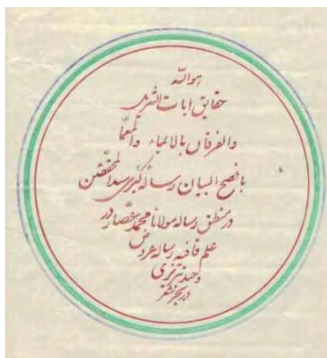 هوالله
حقایق ابات الشریف
دالفرقان بالاعباء دالمعما
بافصح البیان رساله کبری سید المحققین
در منطق رساله مولانا محمد عصار در
علم قافیه رساله عروض
وحید تبریزی
در بحر